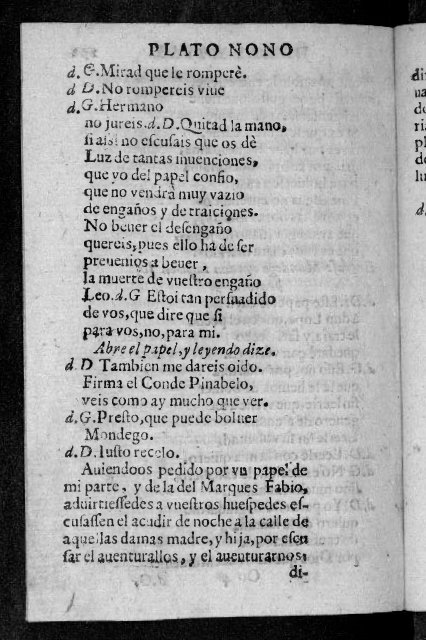 PLATO NONO
d. G. Mirad que le romperè.
d D. No rompereis viue
d. G. Hermano
no jureis. d. D. Quitad la mano,
si assi no escusais que os dè
Luz de tantas inuenciones,
que yo del papel confio,
que no vendrà muy vazio
de engaños y de traiciones.
No beuer el desengaño
quereis, pues ello ha de ser
preuenios a beuer,
la muerte de vuestro engaño
Leo. d. G Estoi tan persuadido
de vos, que dire que si
para vos, no, para mi.
Abre el papel, y leyendo dize.
d. D Tambien me dareis oido.
Firma el Conde Pinabelo,
veis como ay mucho que ver.
d. G. Presto, que puede boluer
Mondego.
d. D. Iusto recelo.
Auiendoos pedido por vn papel de
mi parte, y de la del Marques Fabio,
aduirtiessedes a vuestros huespedes es-
cusassen el acudir de noche a la calle de
aquellas damas madre, y hija, por escu
sar el auenturallos, y el auenturarnos,
di-